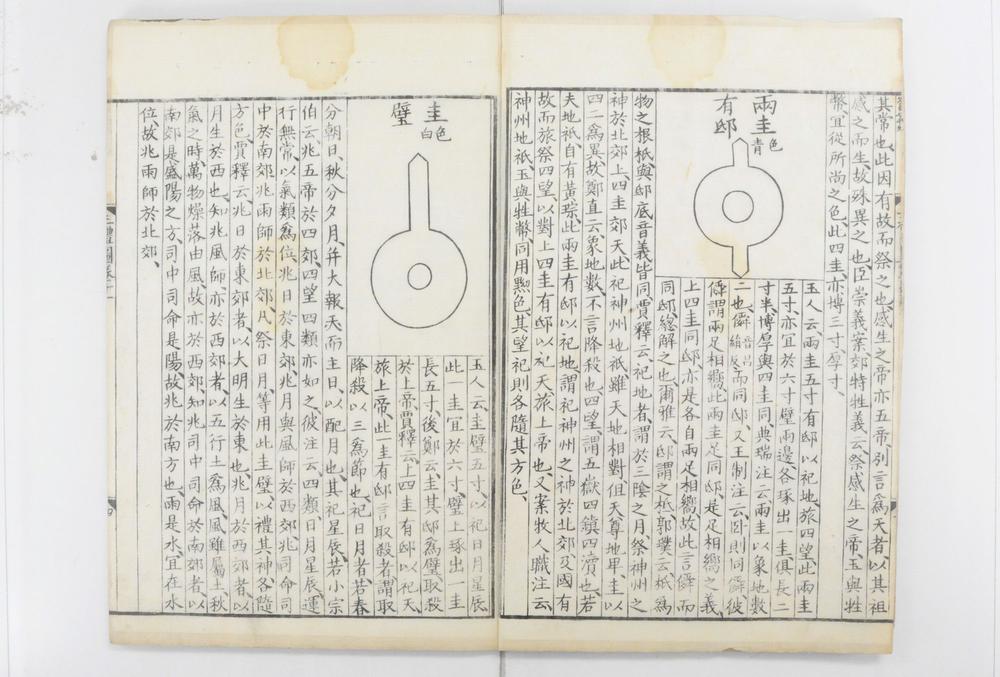 其常也此因有故而祭之也感生之帝亦五帝別言爲天者以其祖
感之而生故殊異之也臣崇義案郊特牲義云祭感生之帝玉與牲
幣宜從所尚之色此四圭亦博三寸厚寸
兩圭
青色
有邸
玉人云兩圭五寸有邸以祀地旅四望此兩圭
五寸亦宜於六寸璧兩邊各琢出一圭俱長二
寸半博厚與四圭同典瑞注云兩圭以象地數
二也僢音昌絹反而同邸又王制注云臥則同僢彼
僢謂兩足相嚮此兩圭足同邸是足相嚮之義
上四圭同邸亦是各自兩足相嚮故此言僢而
同邸緫解之也爾雅云邸謂之柢郭璞云柢爲
物之根柢與邸底音義皆同賈釋云祀地者謂於三陰之月祭神州之
神於北郊上四圭郊天此祀神州地祇雖天地相對但天尊地卑圭以
四二爲異故鄭直云象地數不言降殺也四望謂五嶽四鎮四瀆也若
夫地祇自有黃琮此兩圭有邸以祀地謂祀神州之神於北郊及國有
故而旅祭四望以對上四圭有邸以祀天旅上帝也又案牧人職注云
神州地祇玉與牲幣同用黝色其望祀則各隨其方色
圭
白色
璧
玉人云圭璧五寸以祀日月星辰
此一圭宜於六寸璧上琢出一圭
長五寸後鄭云圭其邸爲璧取殺
於上帝賈釋云上四圭有邸以祀天
旅上帝此一圭有邸言取殺者謂取
降殺以三爲節也祀日月者若春
分朝日秋分夕月并大報天而主日以配月也其祀星辰若小宗
伯云兆五帝於四郊四望四類亦如之彼注云四類日月星辰運
行無常以氣類爲位兆日於東郊兆月與風師於西郊兆司命司
中於南郊兆雨師於北郊凡祭日月等用此圭璧以禮其神各隨
方色賈釋云兆日於東郊者以大明生於東也兆月於西郊者以
月生於西也知兆風師亦於西郊者以五行土爲風風雖屬土秋
氣之時萬物燥落由風故亦於西郊知兆司中司命於南郊者以
南郊是盛陽之方司中司命是陽故兆於南方也雨是水宜在水
位故兆雨師於北郊